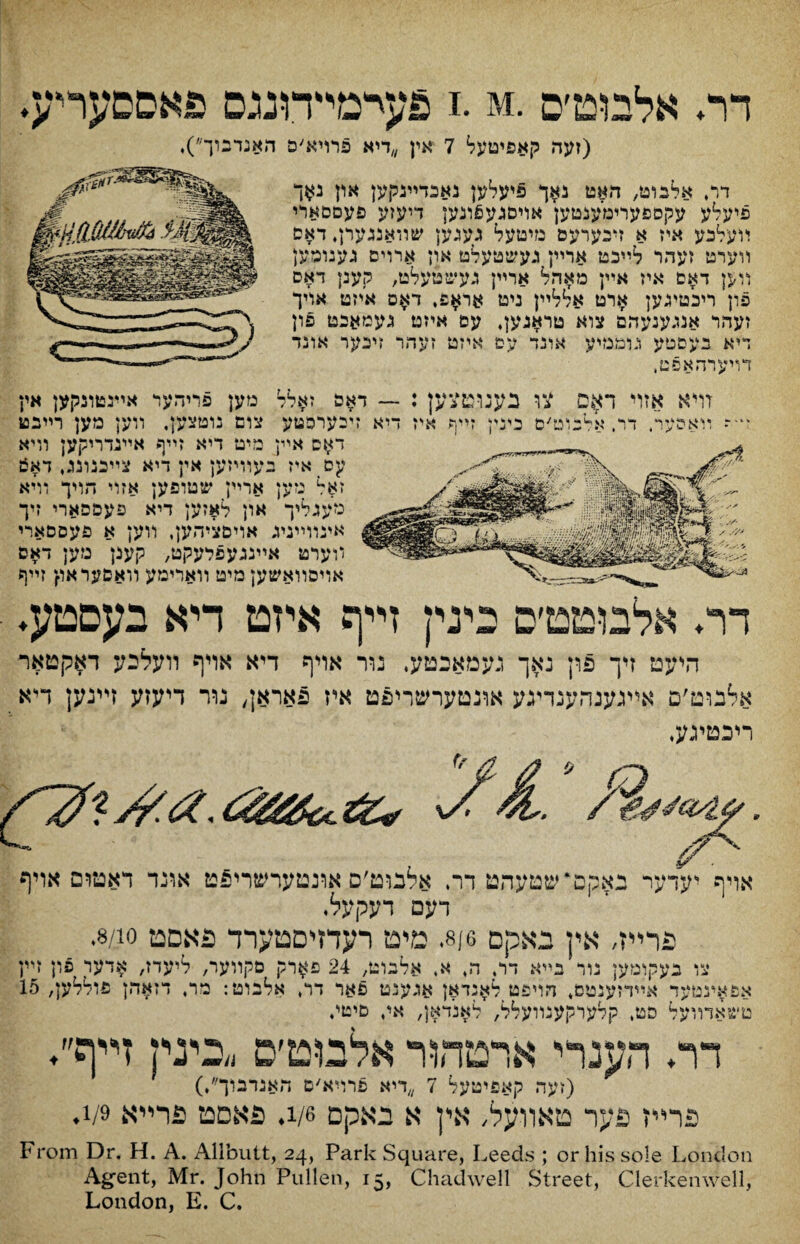 דר. אלבוט'ס I. M. פֿערמיידונגס פאססעריע.
(זעה קאפּיטעל 7 אין „דיא פֿרויא'ס האַנדבוך").
דר. אלבוט, האָט נאָך פֿיעלען נאַכדיינקען און נאָך
פֿיעלע עקספּערימענטען אויסגעפֿונען דיעזע פּעססאַרי
וועלכע איז אַ זיכערעס מיטעל געגען שוואַנגערן. דאָס
ווערט זעהר לייכט אַריין געשטעלט און אַרויס גענומען
ווען דאָס איז איין מאָהל אַריין געשטעלט, קענן דאָס
פֿון ריכטיגען אָרט אַלליין ניט אַראָפּ. דאָס איזט אויך
זעהר אַנגענעהם צוא טראַגען. עס איזט געמאַכט פֿון
דיא בעסטע גוממיע אונד עס איזט זעהר זיכער אונד
דויערהאַפֿט.
H.A. Allbutt's
וויא אַזוי דאָס צו בענוטצען : — דאָס זאָלל מען פֿריהער איינטונקען אין
וואַסער. דר. אלבוט'ס כינין זייף איז דיא זיכערסטע צום נוטצען. ווען מען רייבט
דאָס איין מיט דיא זייף איינדריקען וויא
עס איז בעוויזען אין דיא צייכנונג. דאָס
זאָל מען אַריין שטופּען אַזוי הויך וויא
מעגליך און לאָזען דיא פּעססאַרי זיך
אינווייניג אויסציהען. ווען אַ פּעססאַרי
ווערט איינגעפֿלעקט, קענן מען דאָס
אויסוואַשען מיט וואַרימע וואַסער און זייף
דר. אלבוטט'ס כינין זייף איזט דיא בעסטע.
היעט זיך פֿון נאָך געמאַכטע. נור אויף דיא אויף וועלכע דאָקטאָר
אַלבוט'ס אייגענהענדיגע אונטערשריפֿט איז פֿאַראַן, נור דיעזע זיינען דיא
ריכטיגע.
H. A. Allbutt's
אויף יעדער באָקס שטעהט דר. אַלבוט'ס אונטערשריפֿט אונד דאַטום אויף
דעם דעקעל.
פרייז, אין באקס 8/6. מיט רעדזיסטערד פאסט 8/10.
צו בעקומען נור בייא דר. ה. א. אלבוט, 24 פּאַרק סקווער, ליעדז, אָדער פֿון זיין
אַפּאָינטעד איידזענטס. הויפּט לאָנדאָן אַגענט פֿאַר דר. אלבוט: מר. דזאָהן פּוללען, 15
טשאַדוועל סט. קלערקענוועלל, לאָנדאָן, אי. סיטי.
דר. הענרי ארטהור אלבוט'ס „כינין זייף".
(זעה קאַפּיטעל 7 „דיא פֿרויא'ס האַנדבוך".)
פרייז פער טאוועל, אין א באקס 1/6. פאסט פרייא 1/9.
From Dr. H. A. Allbutt, 24, Park Square, Leeds ; or his sole London
Agent, Mr. John Pullen, 15, Chadwell Street, Clerkenwell,
London, E. C.